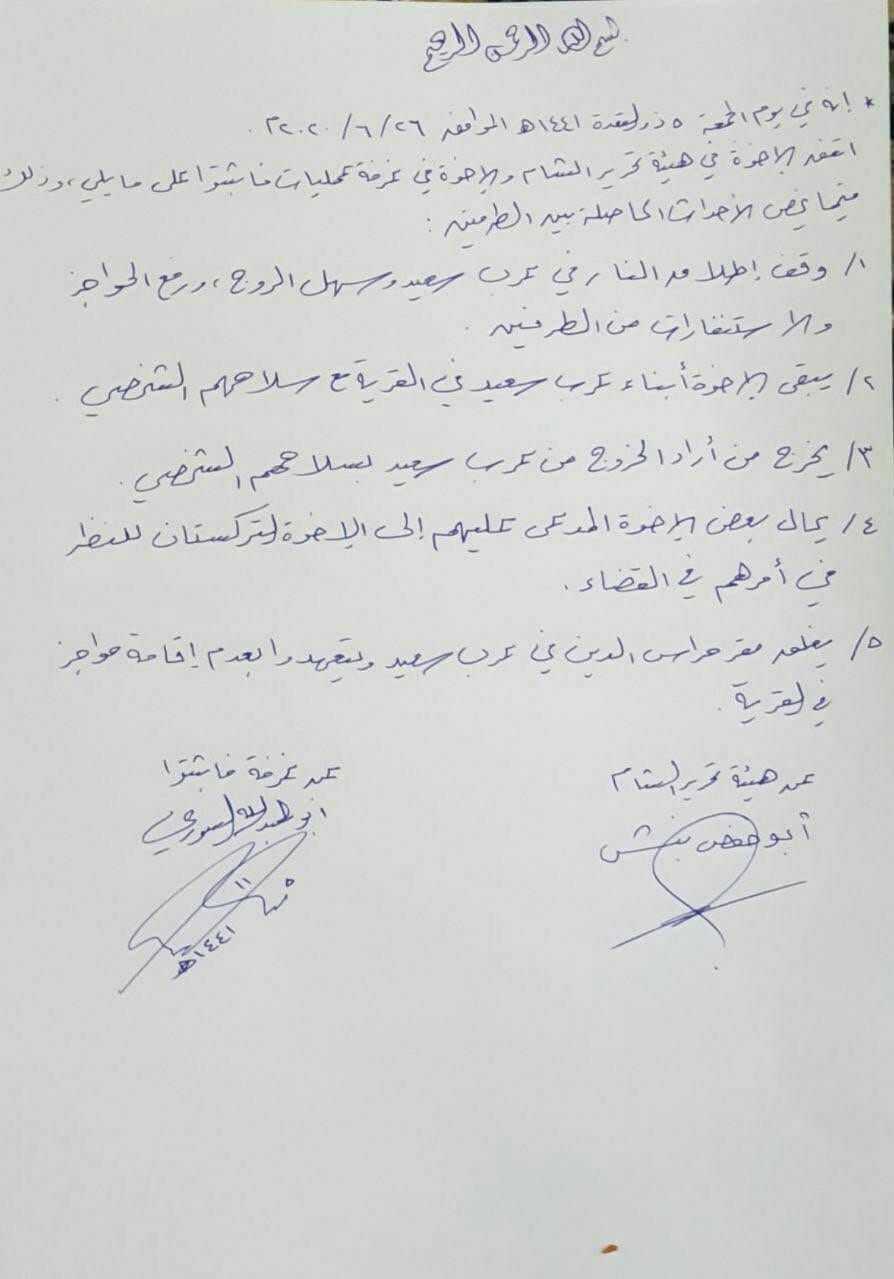 بسم الله الرحمن الرحيم
* إنه في يوم الجمعة ٥ ذو القعدة ١٤٤١هـ الموافق ٢٠٢٠/٦/٢٦م.
اتفق الإخوة في هيئة تحرير الشام والإخوة في غرفة عمليات فاثبتوا على ما يلي، وذلك
فيما يخص الأحداث الحاصلة بين الطرفين:
١/ وقف إطلاق النار في عرب سعيد وسهل الروج، ورفع الحواجز
والاستنفارات من الطرفين.
٢/ يبقى الإخوة أبناء عرب سعيد في القرية مع سلاحهم الشخصي.
٣/ يخرج من أراد الخروج من عرب سعيد بسلاحهم الشخصي.
٤/ يحال بعض الإخوة المدعى عليهم إلى الإخوة التركستان للنظر
في أمرهم في القضاء.
٥/ يغلق مقر حراس الدين في عرب سعيد ويتعهدوا بعدم إقامة حواجز
في القرية.
عن هيئة تحرير الشام
أبو حفص بنش
عن غرفة فاثبتوا
أبو عبد الله السوري
٥
١١
١٤٤١هـ